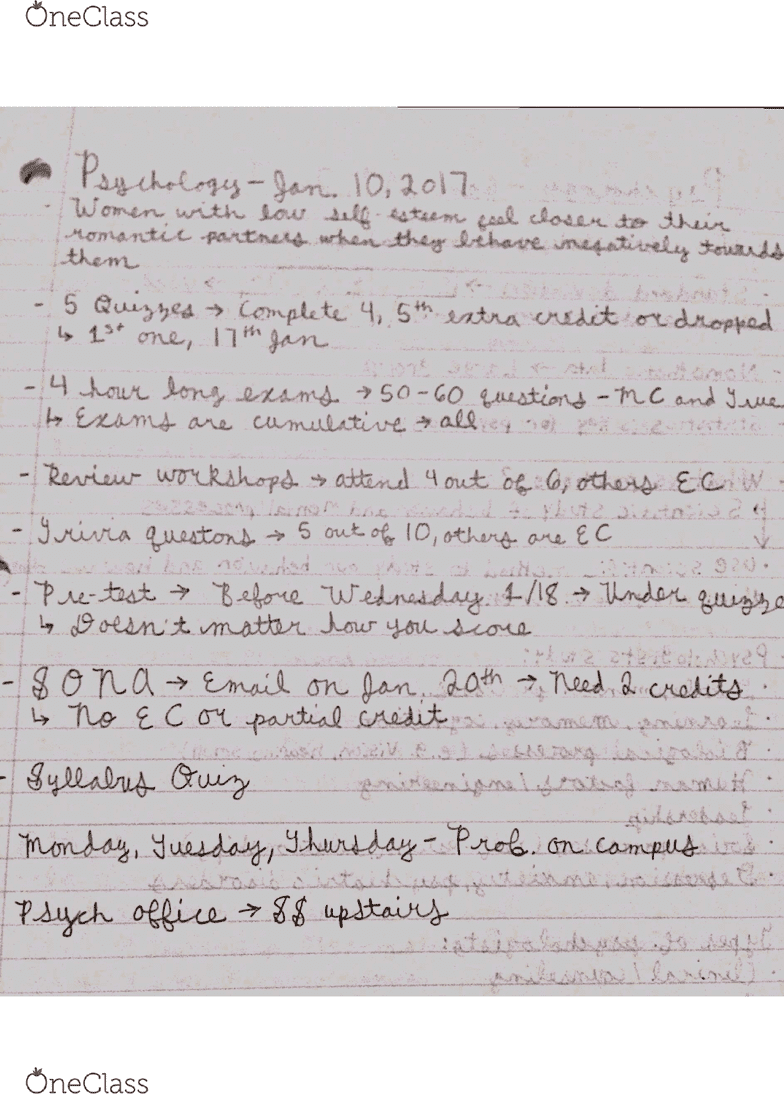 OneClass
Psychology - Jan. 10, 2017
- Women with low self-esteem feel closer to their
romantic partners when they behave negatively towards
them
- 5 Quizzes → Complete 4, 5th extra credit or dropped
↳ 1st one, 17th Jan
- 4 hour long exams → 50-60 questions - MC and True
↳ Exams are cumulative → all
- Review workshops → attend 4 out of 6, others EC
- Trivia questons → 5 out of 10, others are EC
- Pre-test → Before Wednesday 1/18 → Under quizze
↳ Doesn't matter how you score
- SONA → Email on Jan. 20th → Need 2 credits
↳ No EC or partial credit
- Syllabus Quiz
Monday, Tuesday, Thursday - Prof. on campus
Psych office → SS upstairs
OneClass